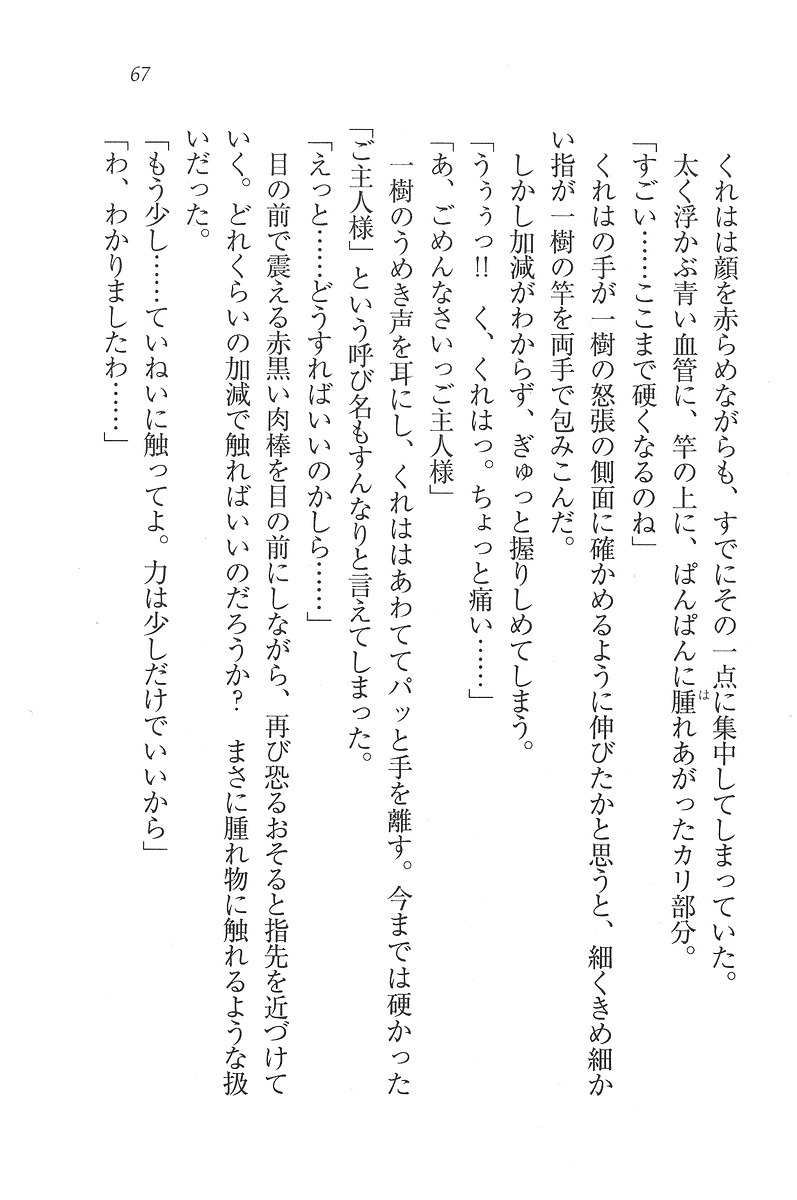 67
くれはは顔を赤らめながらも、すでにその一点に集中してしまっていた。
太く浮かぶ青い血管に、竿の上に、ぱんぱんに腫れあがったカリ部分。
は
「すごい……ここまで硬くなるのね」
くれはの手が一樹の怒張の側面に確かめるように伸びたかと思うと、細くきめ細か
い指が一樹の竿を両手で包みこんだ。
しかし加減がわからず、ぎゅっと握りしめてしまう。
「うぅぅっ!!　く、くれはっ。ちょっと痛い……」
「あ、ごめんなさいっご主人様」
一樹のうめき声を耳にし、くれははあわててパッと手を離す。今までは硬かった
「ご主人様」という呼び名もすんなりと言えてしまった。
「えっと……どうすればいいのかしら……」
目の前で震える赤黒い肉棒を目の前にしながら、再び恐るおそると指先を近づけて
いく。どれくらいの加減で触ればいいのだろうか?　まさに腫れ物に触れるような扱
いだった。
「もう少し……ていねいに触ってよ。力は少しだけでいいから」
「わ、わかりましたわ……」